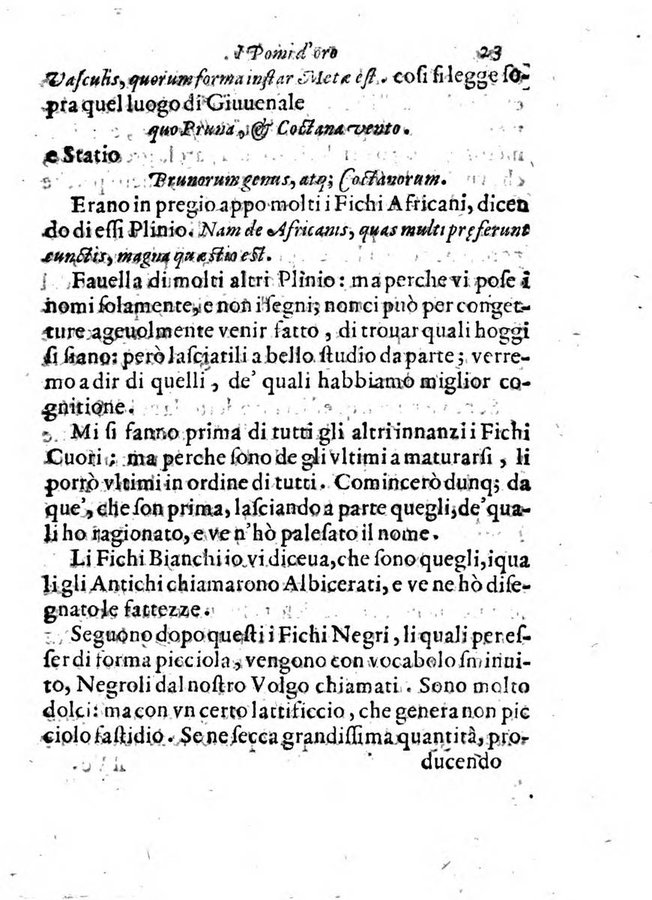 I Pomi d'oro 23
Vasculis, quorum forma instar Metæ est. cosi si legge so-
pra quel luogo di Giuuenale
quo Pruna, & Coctana vento.
e Statio
Prunorum genus, atq; Coctanorum.
Erano in pregio appo molti i Fichi Africani, dicen
do di essi Plinio. Nam de Africanis, quas multi præferunt
cunctis, magna quæstio est.
Fauella di molti altri Plinio: ma perche vi pose i
nomi solamente, e non i segni; non ci può per conget-
ture ageuolmente venir fatto, di trouar quali hoggi
si siano: però lasciatili a bello studio da parte; verre-
mo a dir di quelli, de' quali habbiamo miglior co-
gnitione.
Mi si fanno prima di tutti gli altri innanzi i Fichi
Cuori; ma perche sono de gli vltimi a maturarsi, li
porrò vltimi in ordine di tutti. Comincerò dunq; da
que', che son prima, lasciando a parte quegli, de' qua-
li ho ragionato, e ve n'hò palesato il nome.
Li Fichi Bianchi io vi diceua, che sono quegli, i qua
li gli Antichi chiamarono Albicerati, e ve ne hò dise-
gnato le fattezze.
Seguono dopo questi i Fichi Negri, li quali per es-
ser di forma picciola, vengono con vocabolo sminui-
to, Negroli dal nostro Volgo chiamati. Sono molto
dolci: ma con vn certo lattificcio, che genera non pic
ciolo fastidio. Se ne secca grandissima quantità, pro-
ducendo